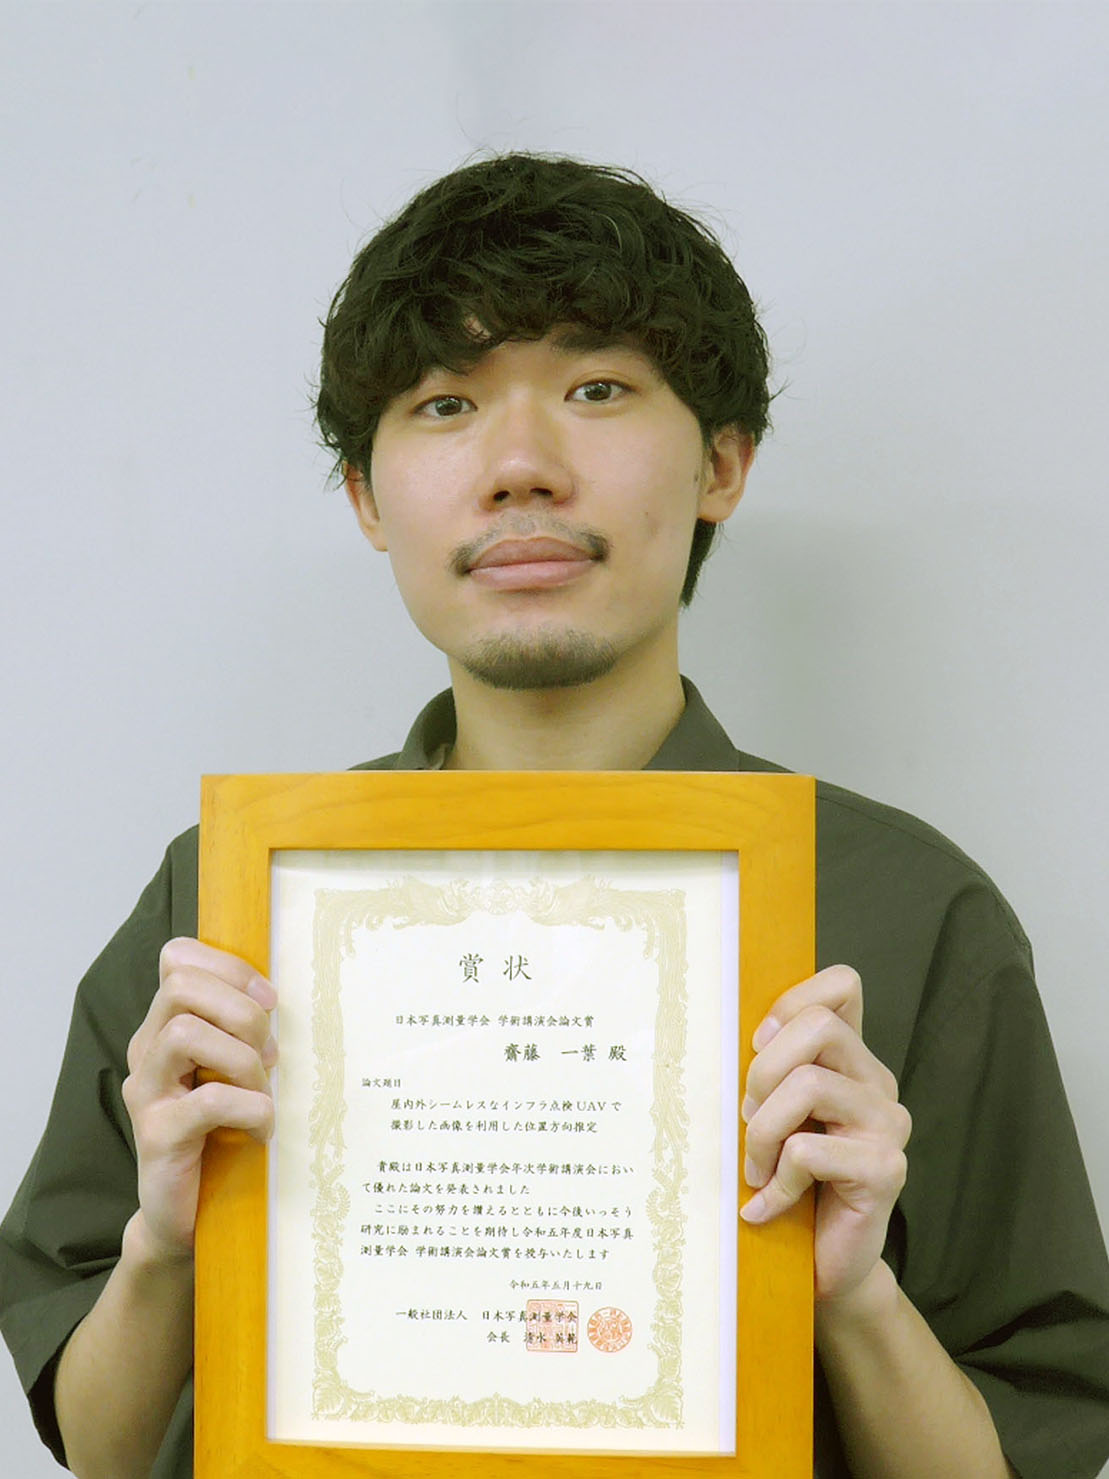 賞状
日本写真測量学会 学術講演会論文賞
齋藤 一葉 殿
論文題目
屋内外シームレスなインフラ点検UAVで
撮影した画像を利用した位置方向推定
貴殿は日本写真測量学会年次学術講演会におい
て優れた論文を発表されました
ここにその努力を讃えるとともに今後いっそう
研究に励まれることを期待し令和五年度日本写真
測量学会 学術講演会論文賞を授与いたします
令和五年五月十九日
一般社団法人 日本写真測量学会
会長 清水 英範